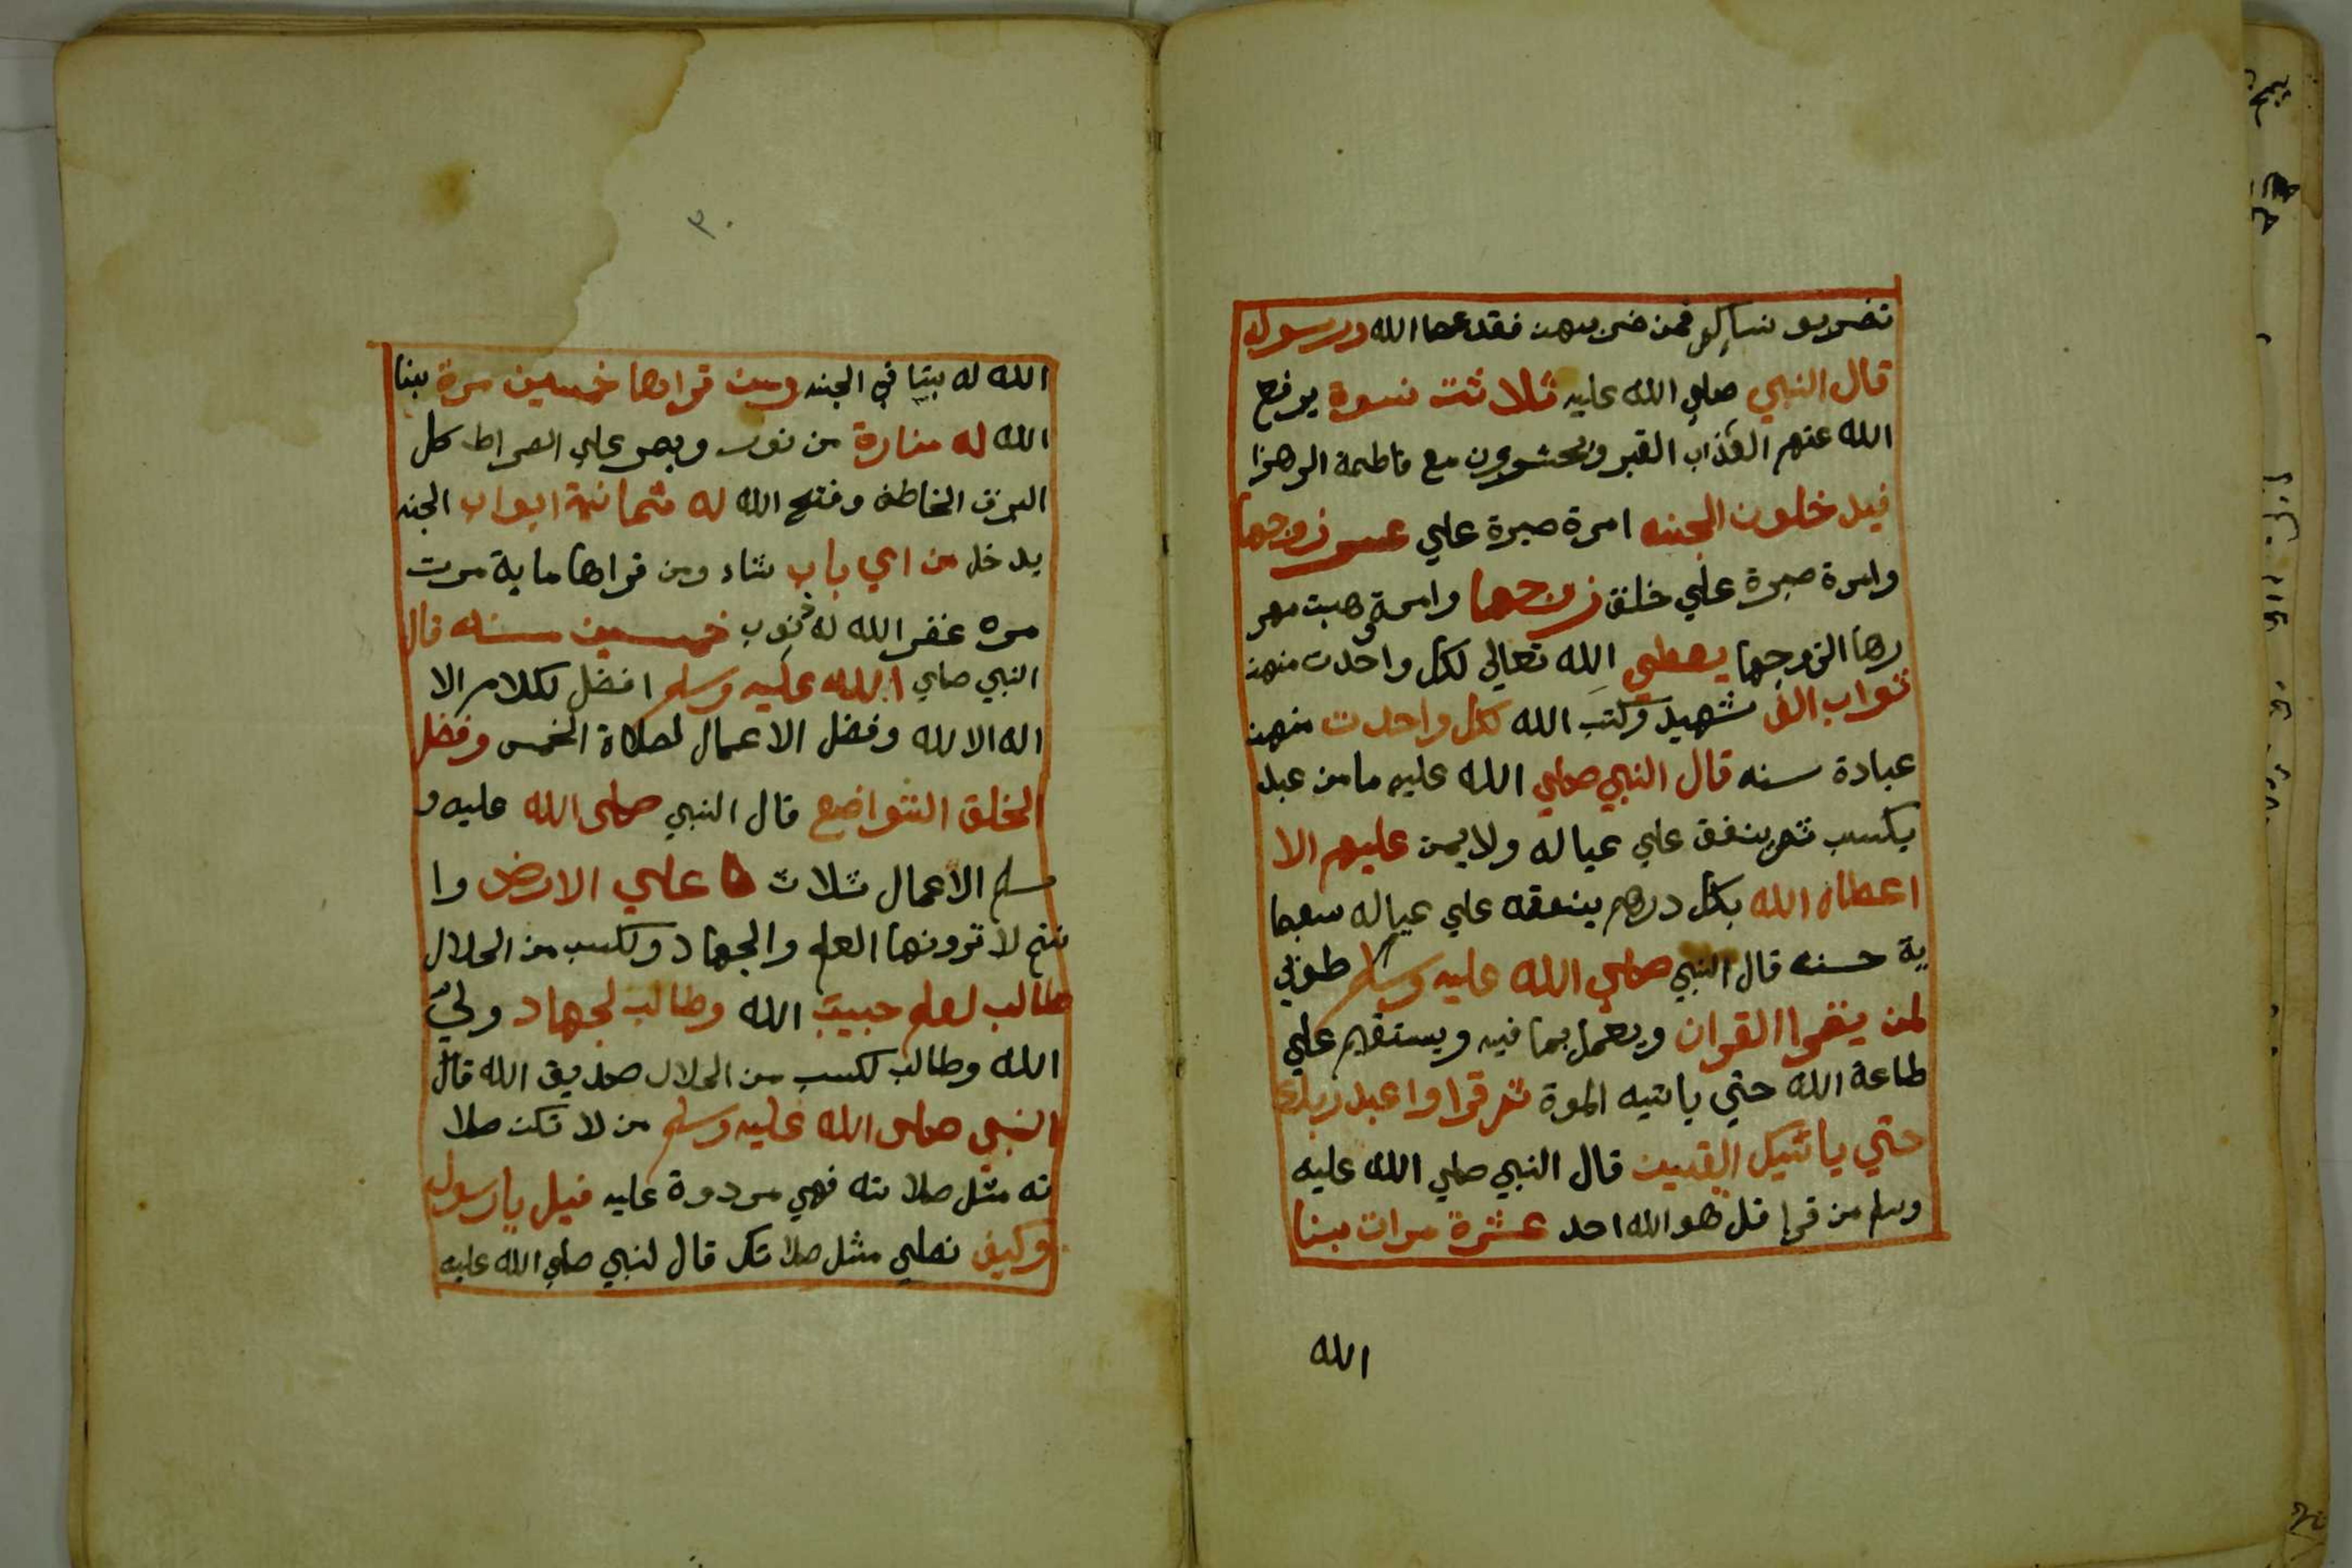 تضربو نساكم فمن ضربهن فقد عصا الله ورسوله
قال النبي صلي الله عليه ثلاثت نسوة يرفع
الله عنهم العذاب القبر ويحشرون مع فاطمة الزهرا
فيدخلون الجنه امرة صبرة علي عسر زوجها
وامرة صبرة علي خلق زوجها وامرة وهبت مهر
رها الزوجها يعطي الله تعالي لكل واحدت منهن
ثواب الف شهيد وكتب الله لكل واحدت منهن
عبادة سنه قال النبي صلي الله عليه ما من عبد
يكسب ثم ينفق علي عياله ولا يمن عليهم الا
اعطاه الله بكل درهم ينفقه علي عياله سبعما
ية حسنه قال النبي صلي الله عليه وسلم طوبي
لمن يقرا القران ويعمل بما فيه ويستقيم علي
طاعة الله حتي ياتيه الموة ثم قرا واعبد ربك
حتي ياتيك اليقين قال النبي صلي الله عليه
وسلم من قرا قل هو الله احد عشرة مرات بنا
الله
٣٠
الله له بيتا في الجنه ومن قراها خمسين مرة بنا
الله له منارة من نور ويمر علي الصراط كل
البرق الخاطف وفتح الله له ثمانية ابواب الجنه
يدخل من اي باب شاء ومن قراها ماية مرت
مره غفر الله له ذنوب خمسين سنه قال
النبي صلي الله عليه وسلم افضل لكلام الا
اله الا لله وفضل الاعمال لصلاة الخمس وفضل
الخلق التواضع قال النبي صلى الله عليه و
سلم الاعمال ثلاث ها علي الارض وا
نتم لا ترونها العلم والجهاد ولكسب من الحلال
طالب لعلم حبيب الله وطالب لجهاد ولي
الله وطالب لكسب من الحلال صديق الله قال
النبي صلى الله عليه وسلم من لا تكن صلا
ته مثل صلاته فهي مردوة عليه قيل يا رسول
وكيف نصلي مثل صلاتك قال لنبي صلي الله عليه